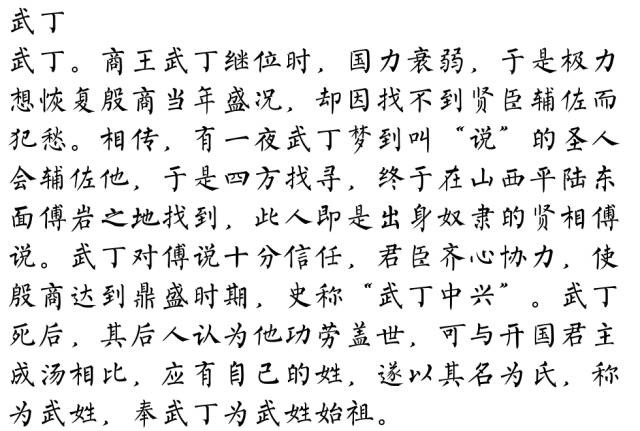 武丁
武丁。商王武丁继位时，国力衰弱，于是极力
想恢复殷商当年盛况，却因找不到贤臣辅佐而
犯愁。相传，有一夜武丁梦到叫“说”的圣人
会辅佐他，于是四方找寻，终于在山西平陆东
面傅岩之地找到，此人即是出身奴隶的贤相傅
说。武丁对傅说十分信任，君臣齐心协力，使
殷商达到鼎盛时期，史称“武丁中兴”。武丁
死后，其后人认为他功劳盖世，可与开国君主
成汤相比，应有自己的姓，遂以其名为氏，称
为武姓，奉武丁为武姓始祖。